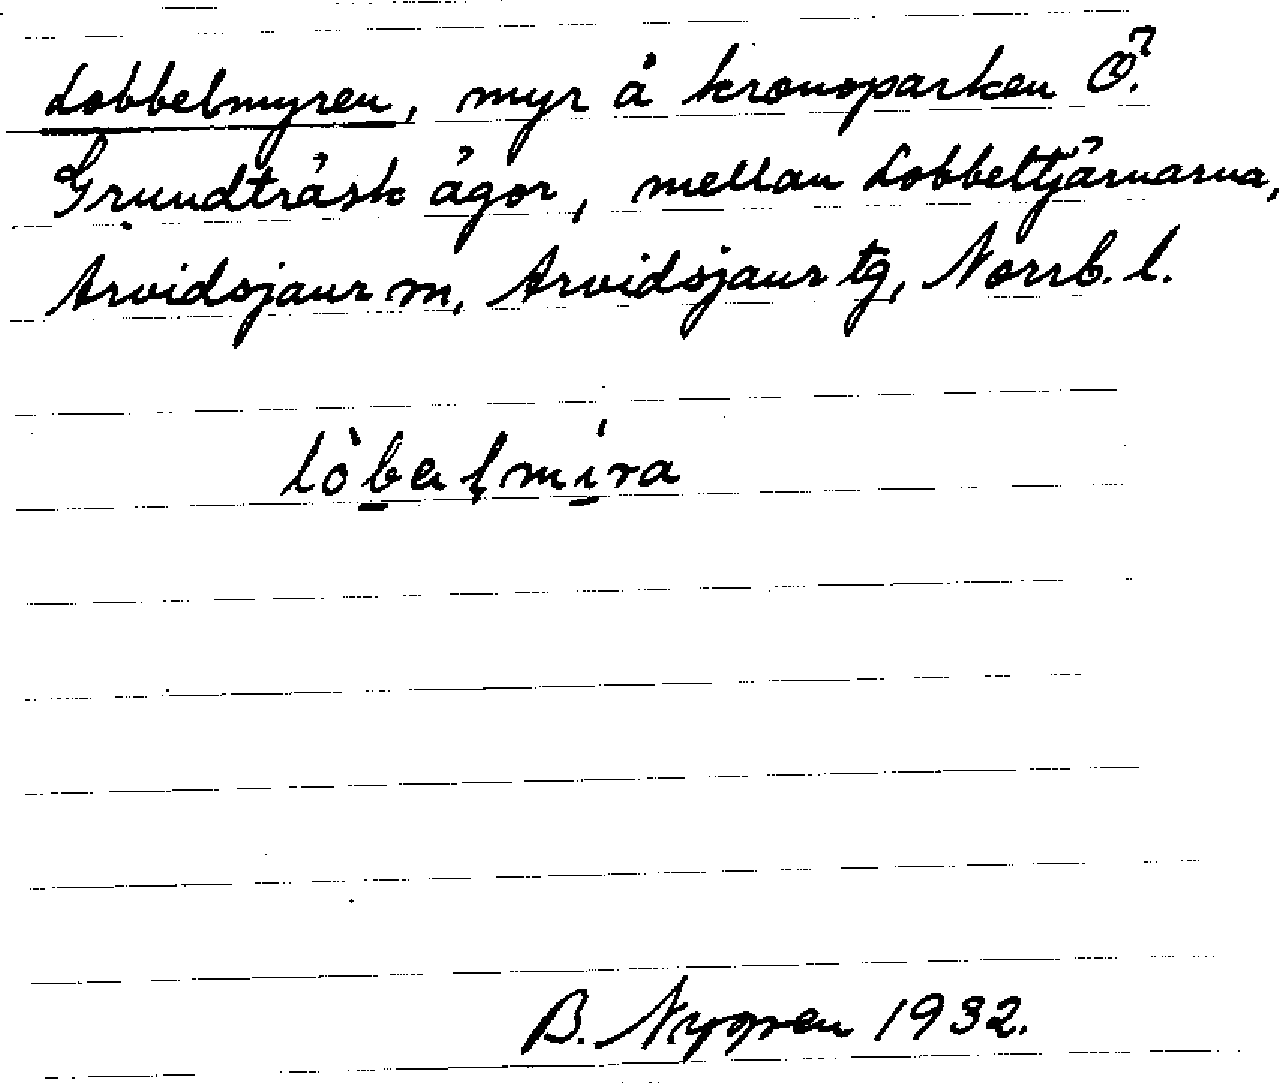 Lobbelmyren, myr å kronoparken Ö.
Grundträsk ägor, mellan Lobbeltjärnarna,
Arvidsjaur m, Arvidsjaur tg, Norrb. l.
lòbaḷmíra
B. Nygren 1932.